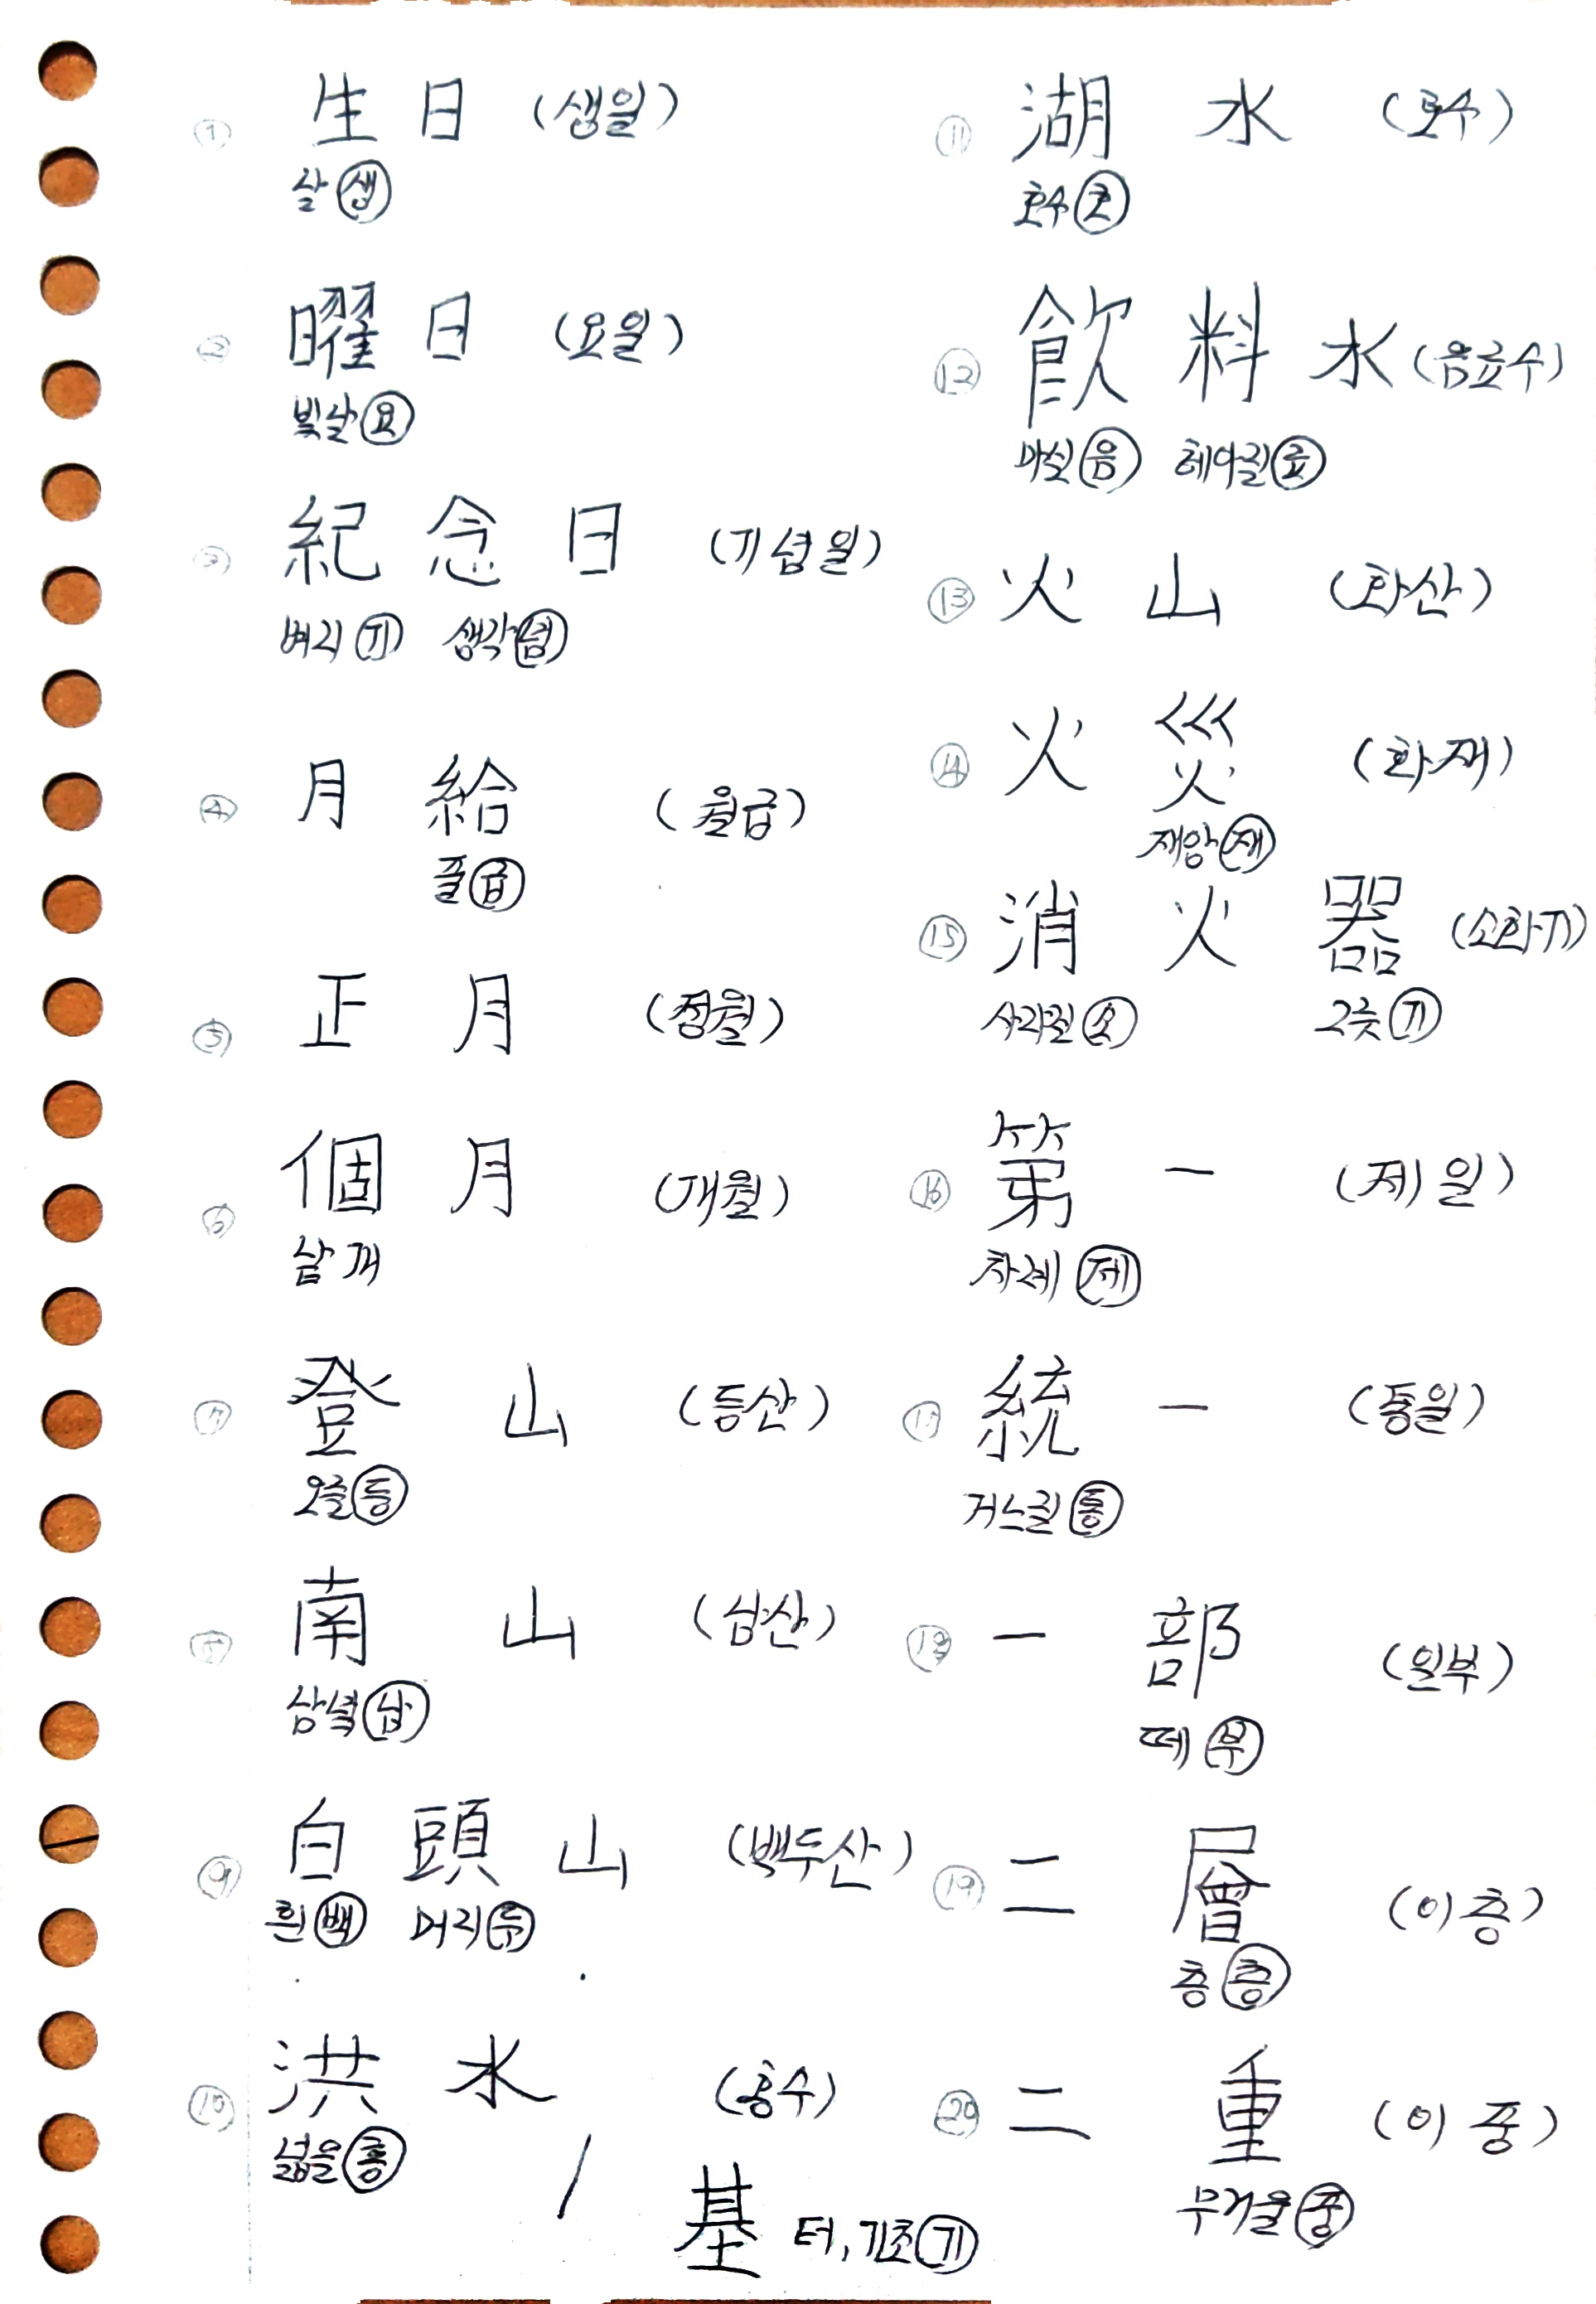 ① 生日 (생일)
살 생
② 曜日 (요일)
빛날 요
③ 紀念日 (기념일)
벼리 기 생각 념
④ 月給 (월급)
줄 급
⑤ 正月 (정월)
⑥ 個月 (개월)
낱 개
⑦ 登山 (등산)
오를 등
⑧ 南山 (남산)
남녘 남
⑨ 白頭山 (백두산)
흰 백 머리 두
⑩ 洪水 (홍수)
넓을 홍
/ 基 터, 기초 기
⑪ 湖水 (호수)
호수 호
⑫ 飮料水 (음료수)
마실 음 헤아릴 료
⑬ 火山 (화산)
⑭ 火災 (화재)
재앙 재
⑮ 消火器 (소화기)
사라질 소 그릇 기
⑯ 第一 (제일)
차례 제
⑰ 統一 (통일)
거느릴 통
⑱ 一部 (일부)
떼 부
⑲ 二層 (이층)
층 층
⑳ 二重 (이중)
무거울 중